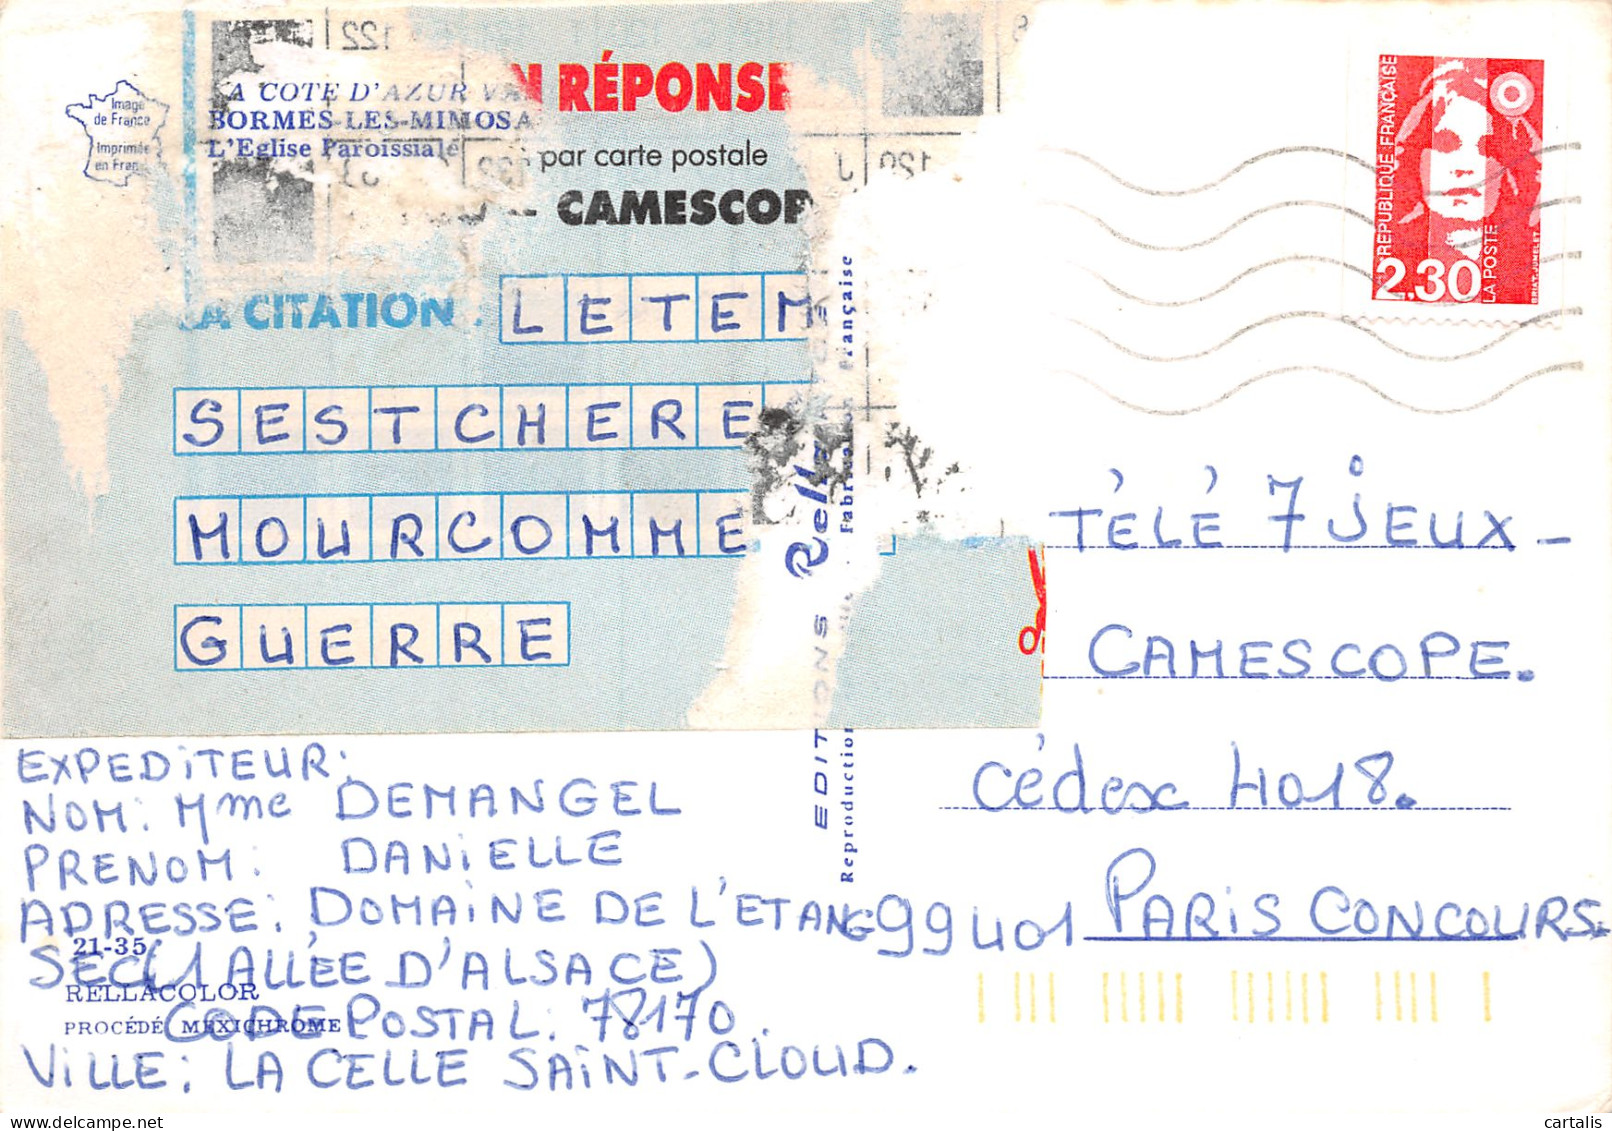 Image
de France
Imprimée
en Fran
A COTE D'AZUR VA
BORMES-LES-MIMOSA
L'Eglise Paroissiale
122
N RÉPONSE
par carte postale
CAMESCOP
A CITATION : LETEM
SESTCHERE
MOURCOMME
GUERRE
RÉPUBLIQUE FRANÇAISE
2,30
LA POSTE
BRIAT.JUMELET
EDITIONS Rella
Reproduction
Française
TÉLÉ 7 JEUX -
CAMESCOPE.
Cédex 4018.
99401 PARIS CONCOURS.
EXPEDITEUR:
NOM: Mme DEMANGEL
PRENOM: DANIELLE
ADRESSE: DOMAINE DE L'ETANG
SEC (1 ALLÉE D'ALSACE)
21-35
RELLACOLOR
CODE POSTAL: 78170.
PROCÉDÉ MEXICHROME
VILLE: LA CELLE SAINT-CLOUD.
cartalis